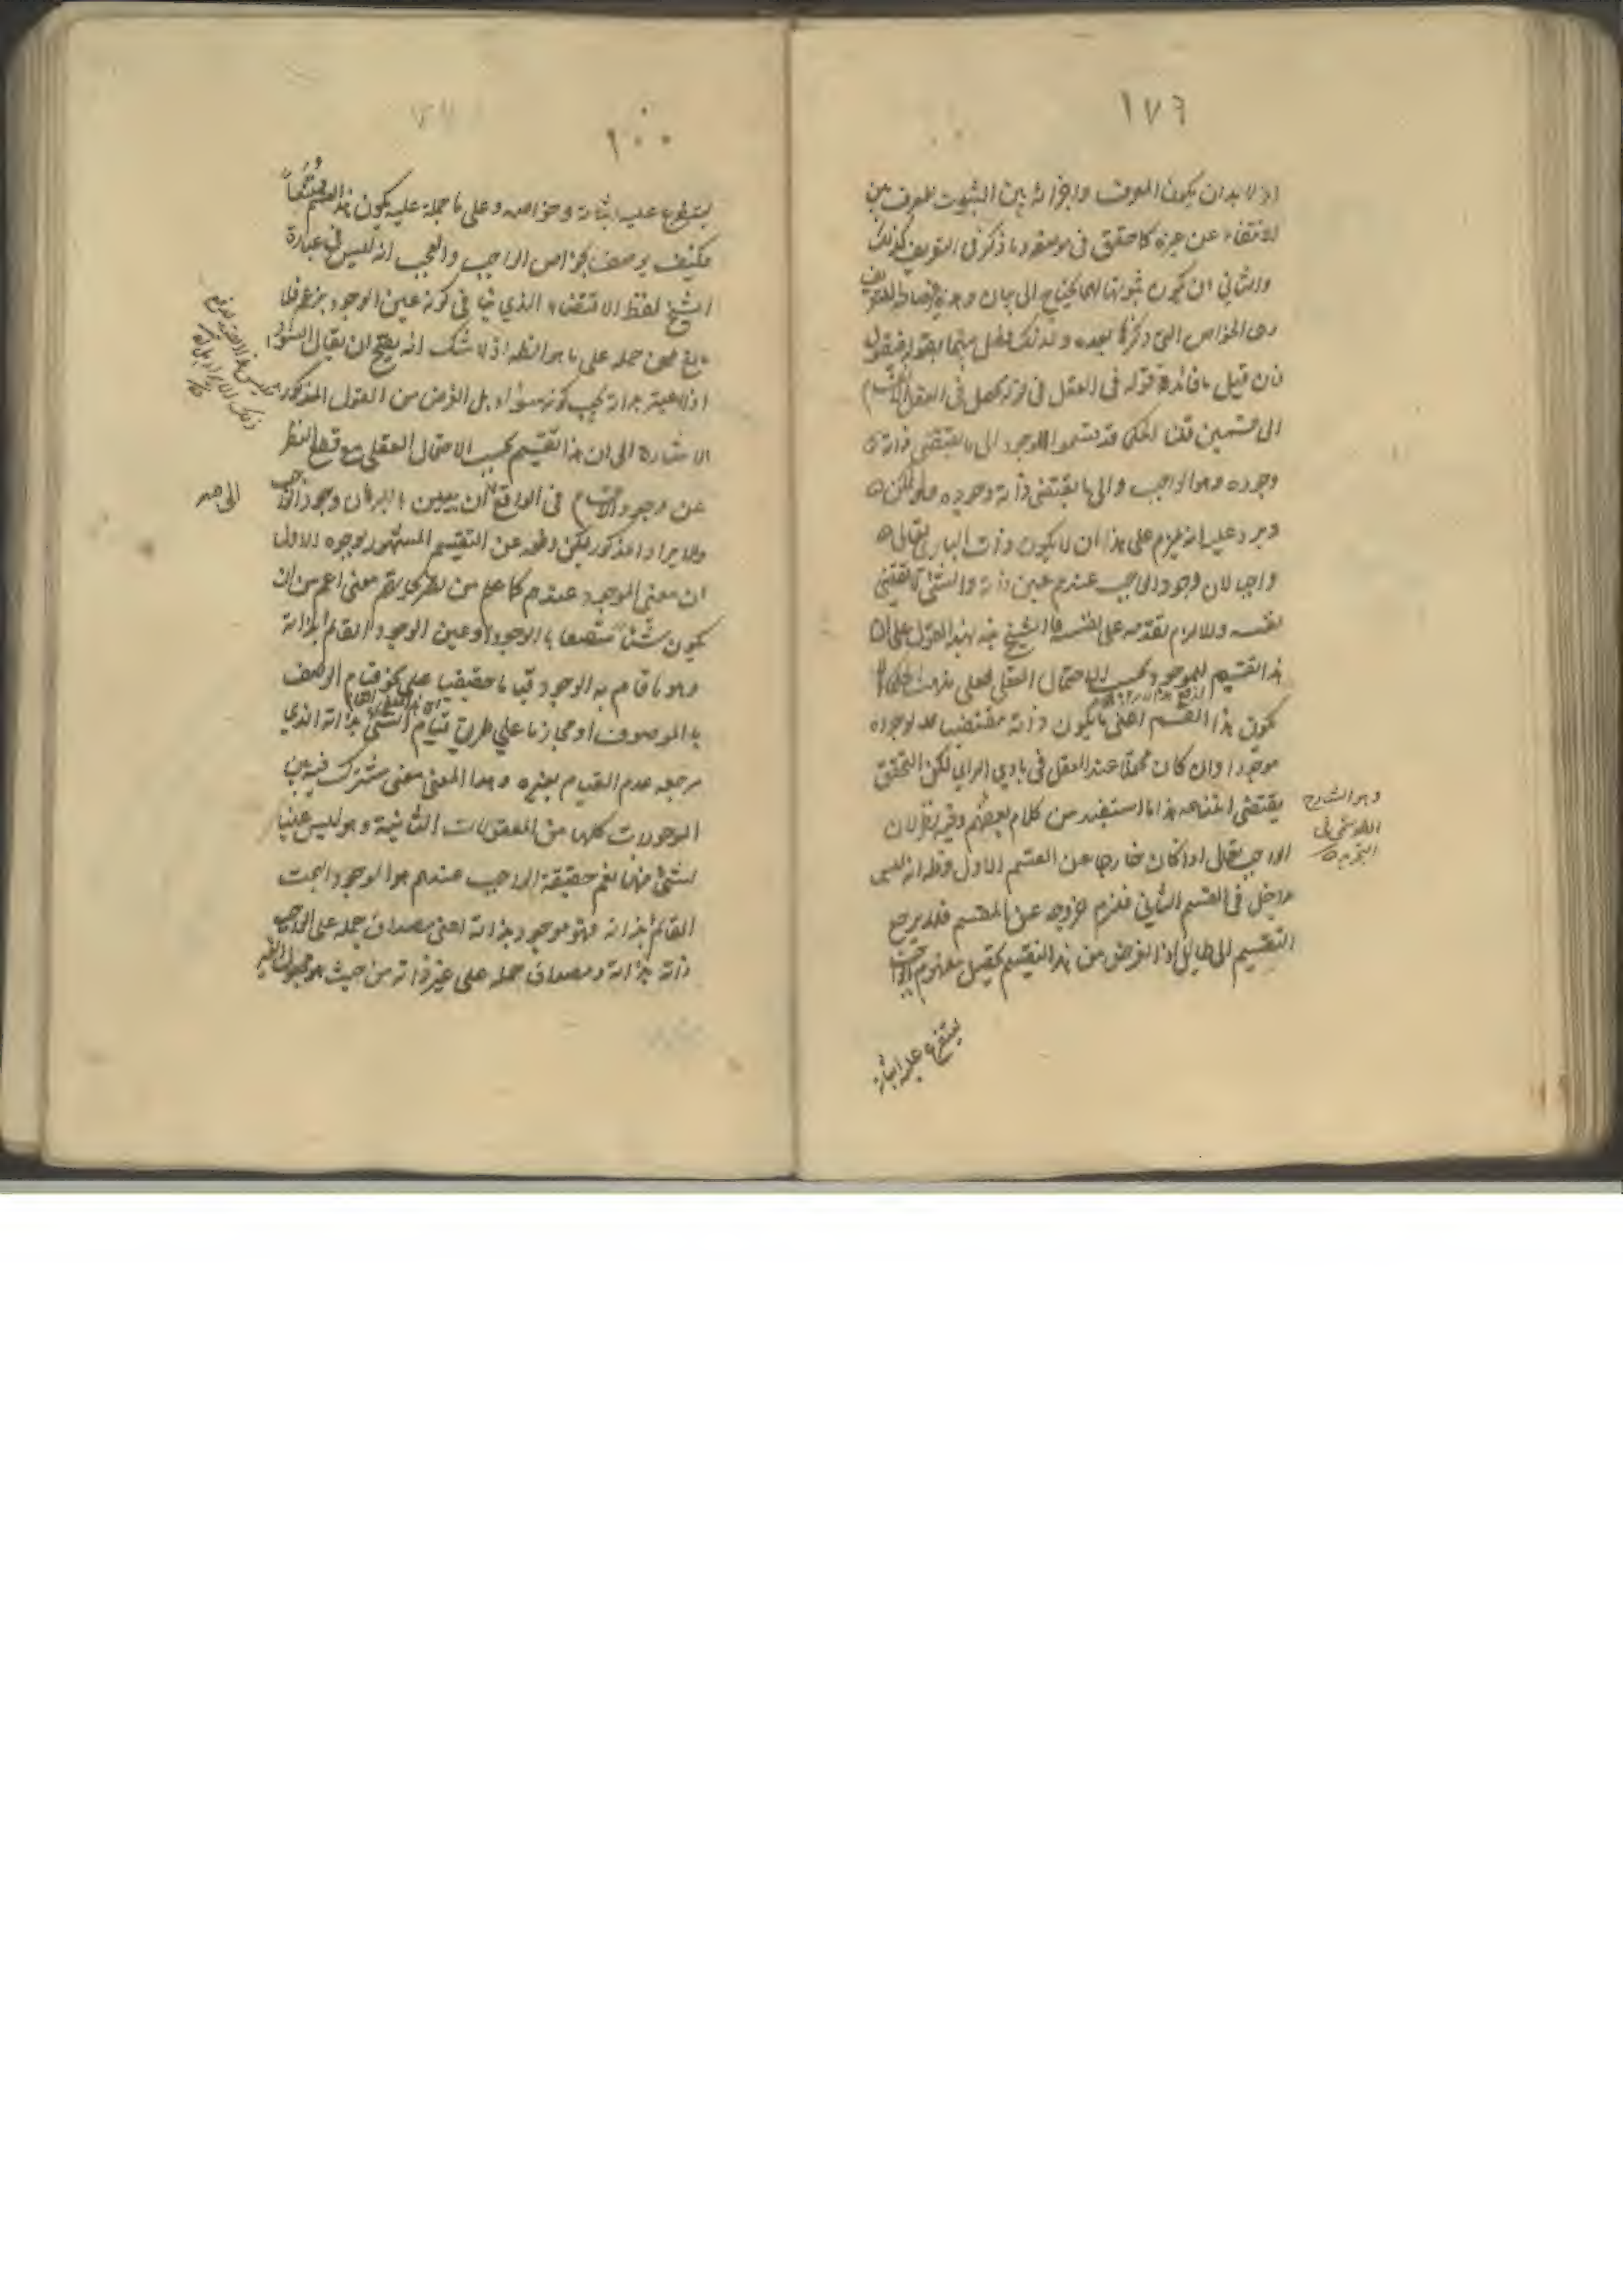 ١٧٦
اذ لا بد ان يكون المعرف واجزائه بين الثبوت للمعرف بين
الانتفاء عن غيره كما حقق في موضعه وما ذكر في التعريف كذلك
والثاني ان يكون ثبوتها لها يحتاج الى بيان
هي الخواص التي ذكرها بعده ولذلك فصل بينهما بقوله فنقول
فان قيل ما فائدة قوله في العقل في قوله يحصل في العقل
الى قسمين قلت الحكماء قد يقسموا الموجود الى ما يقتضي ذاته
وجوده وهو الواجب والى ما لا يقتضي ذاته وجوده وهو الممكن
ويرد عليه انه يلزم على هذا ان لا يكون ذات الباري تعالى
واجبا لان وجود الواجب عندهم عين ذاته والشئ لا يقتضي
نفسه والا لزم تقدمه على نفسه فالشيخ نبه بهذا القول على ان
هذا التقسيم للموجود بحسب الاحتمال العقلي فعلى مذهب الحكماء
يكون هذا القسم اعني ما يكون ذاته مقتضيا لوجوده
موجودا وان كان محتملا عند العقل في بادي الراي لكن التحقق
يقتضي امتناعه هذا ما استفيد من كلام بعضهم وفيه نظر لان
الواجب تعالى اذا كان خارجا عن القسم الاول فظ انه ليس
داخل في القسم الثاني فلزم خروجه عن المقسم فلا يرجع
التقسيم الى طائل اذ الغرض من هذا التقسيم تحصيل مفهوم الواجب
يتفرع عليه اثباته
وهو الشارح
القوشجي في
التجريد
يتفرع عليه اثباته وخواصه وعلى ما حمله عليه يكون هذا القسم ممتنعا
فكيف يوصف بخواص الواجب والعجب انه ليس في عبارة
الشيخ لفظ الاقتضاء الذي ينافي كونه عين الوجود بزعم فلا
مانع من حمله على ما هو الظ اذ لا شك انه يصح ان يقال السواد
اذا اعتبر بذاته يجب كونه سوادا بل الغرض من القول المذكور
الاشارة الى ان هذا تقسيم بحسب الاحتمال العقلي مع قطع النظر
عن وجود الاقسام في الواقع الى ان يبين بالبرهان وجود الواجب
والايراد المذكور يمكن دفعه عن التقسيم المشهور بوجوه الاول
ان معنى الموجود عندهم كما علم من معنى اعم من ان
يكون شيئا متصفا بالوجود او عين الوجود القائم بذاته
وهو ما قام به الوجود قياما حقيقيا على نحو قيام الوصف
بالموصوف او مجازيا على طريق قيام الشئ بذاته الذي
مرجعه عدم القيام بغيره وهذا المعنى معنى مشترك فيه بين
الموجودات كلها من المعقولات الثانية وهو ليس عينا
لشئ منها نعم حقيقة الواجب عندهم هو الوجود البحت
القائم بذاته فهو موجود بذاته اعني مصداق حمله على الواجب
ذاته بذاته ومصداق حمله على غيره ذاته من حيث هو مجعول الغير